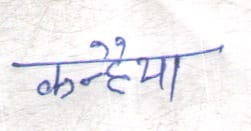 कन्हैया